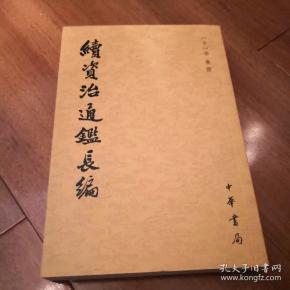 續資治通鑑長編
[宋]李燾撰
中華書局
孔夫子旧书网